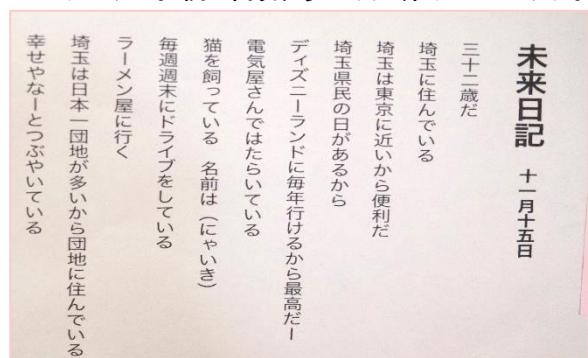 未来日記 十一月十五日
三十二歳だ
埼玉に住んでいる
埼玉は東京に近いから便利だ
埼玉県民の日があるから
ディズニーランドに毎年行けるから最高だー
電気屋さんではたらいている
猫を飼っている 名前は（にゃいき）
毎週週末にドライブをしている
ラーメン屋に行く
埼玉は日本一団地が多いから団地に住んでいる
幸せやなーとつぶやいている